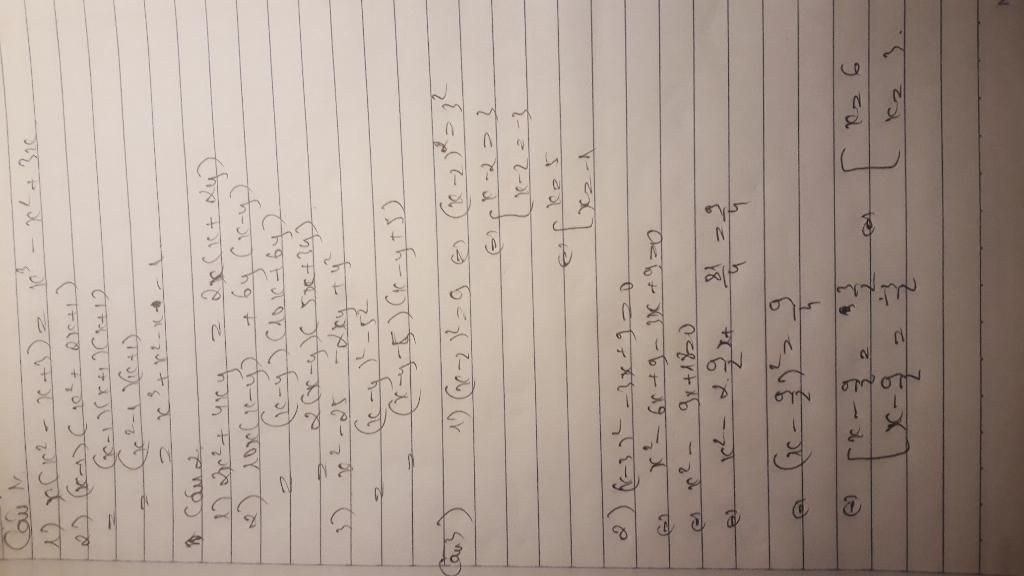 Câu 1.
1) x(x² - x + 3) = x³ - x² + 3x
2) (x-1)(x² + 2x + 1)
= (x-1)(x+1)(x+1)
= (x² - 1)(x+1)
= x³ + x² - x - 1
Câu 2
1) 2x² + 4xy = 2x(x + 2y)
2) 10x(x-y) + 6y(x-y)
= (x-y)(10x + 6y)
= 2(x-y)(5x + 3y)
3) x² - 25 - 2xy + y²
= (x-y)² - 5²
= (x-y-5)(x-y+5)
Câu 3) 1) (x-2)² = 9 ⇔ (x-2)² = 3²
⇔ [x-2 = 3
[x-2 = -3
⇔ [x = 5
[x = -1
2) (x-3)² - 3x + 9 = 0
⇔ x² - 6x + 9 - 3x + 9 = 0
⇔ x² - 9x + 18 = 0
⇔ x² - 2·9/2 x + 81/4 = 9/4
⇔ (x - 9/2)² = 9/4
⇔ [x - 9/2 = 3/2 ⇔ [x = 6
[x - 9/2 = -3/2 [x = 3.